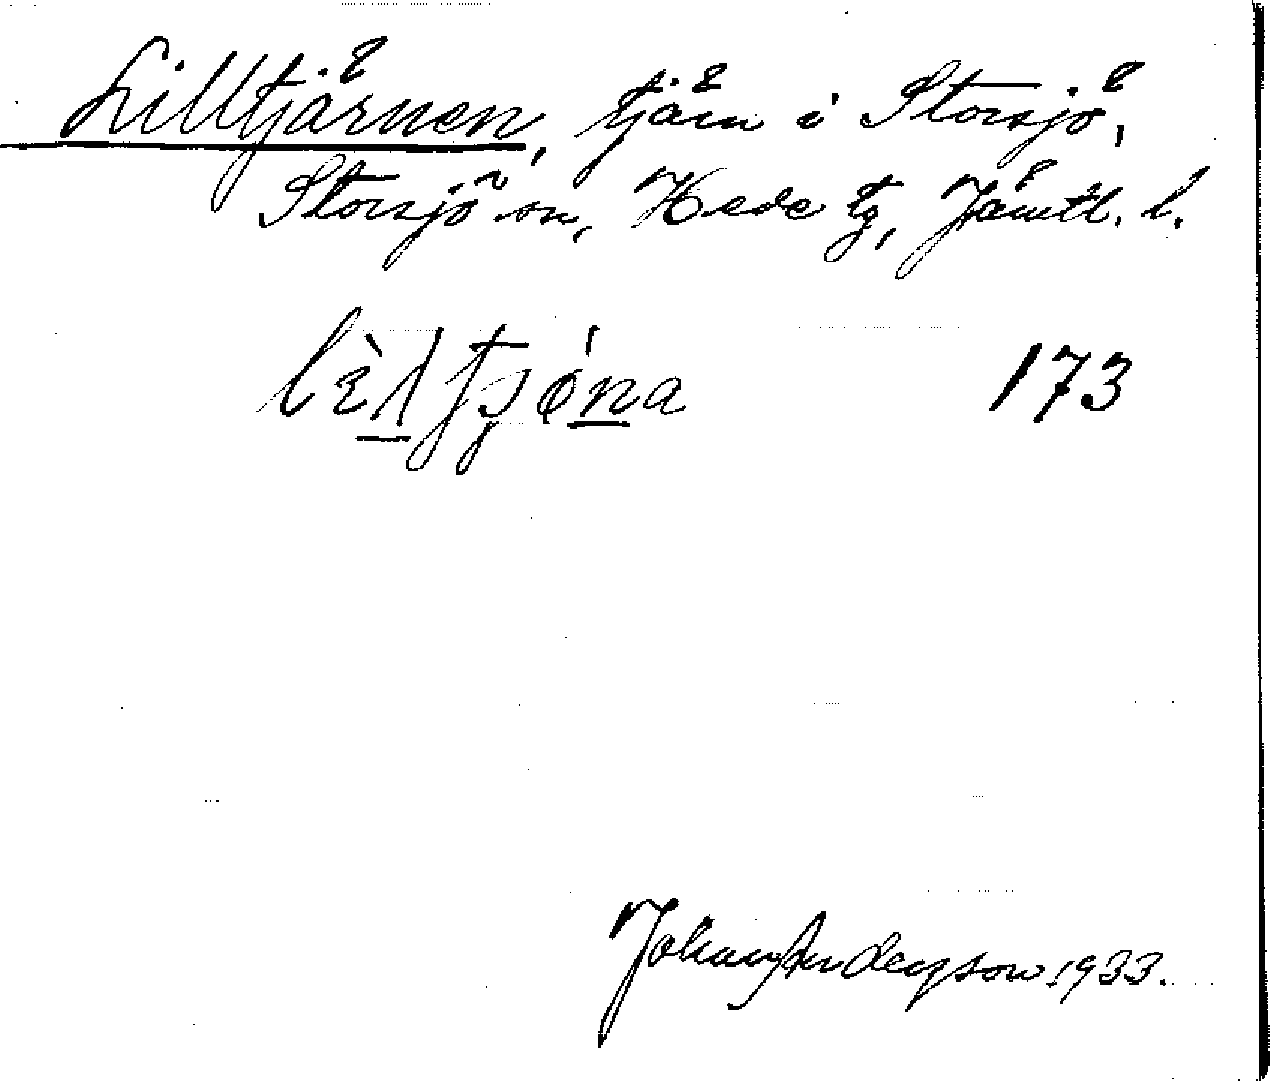 Lilltjärnen, tjärn i Storsjö,
Storsjö sn, Hede tg, Jämtl. l.
173
Johan Anderson 1933.